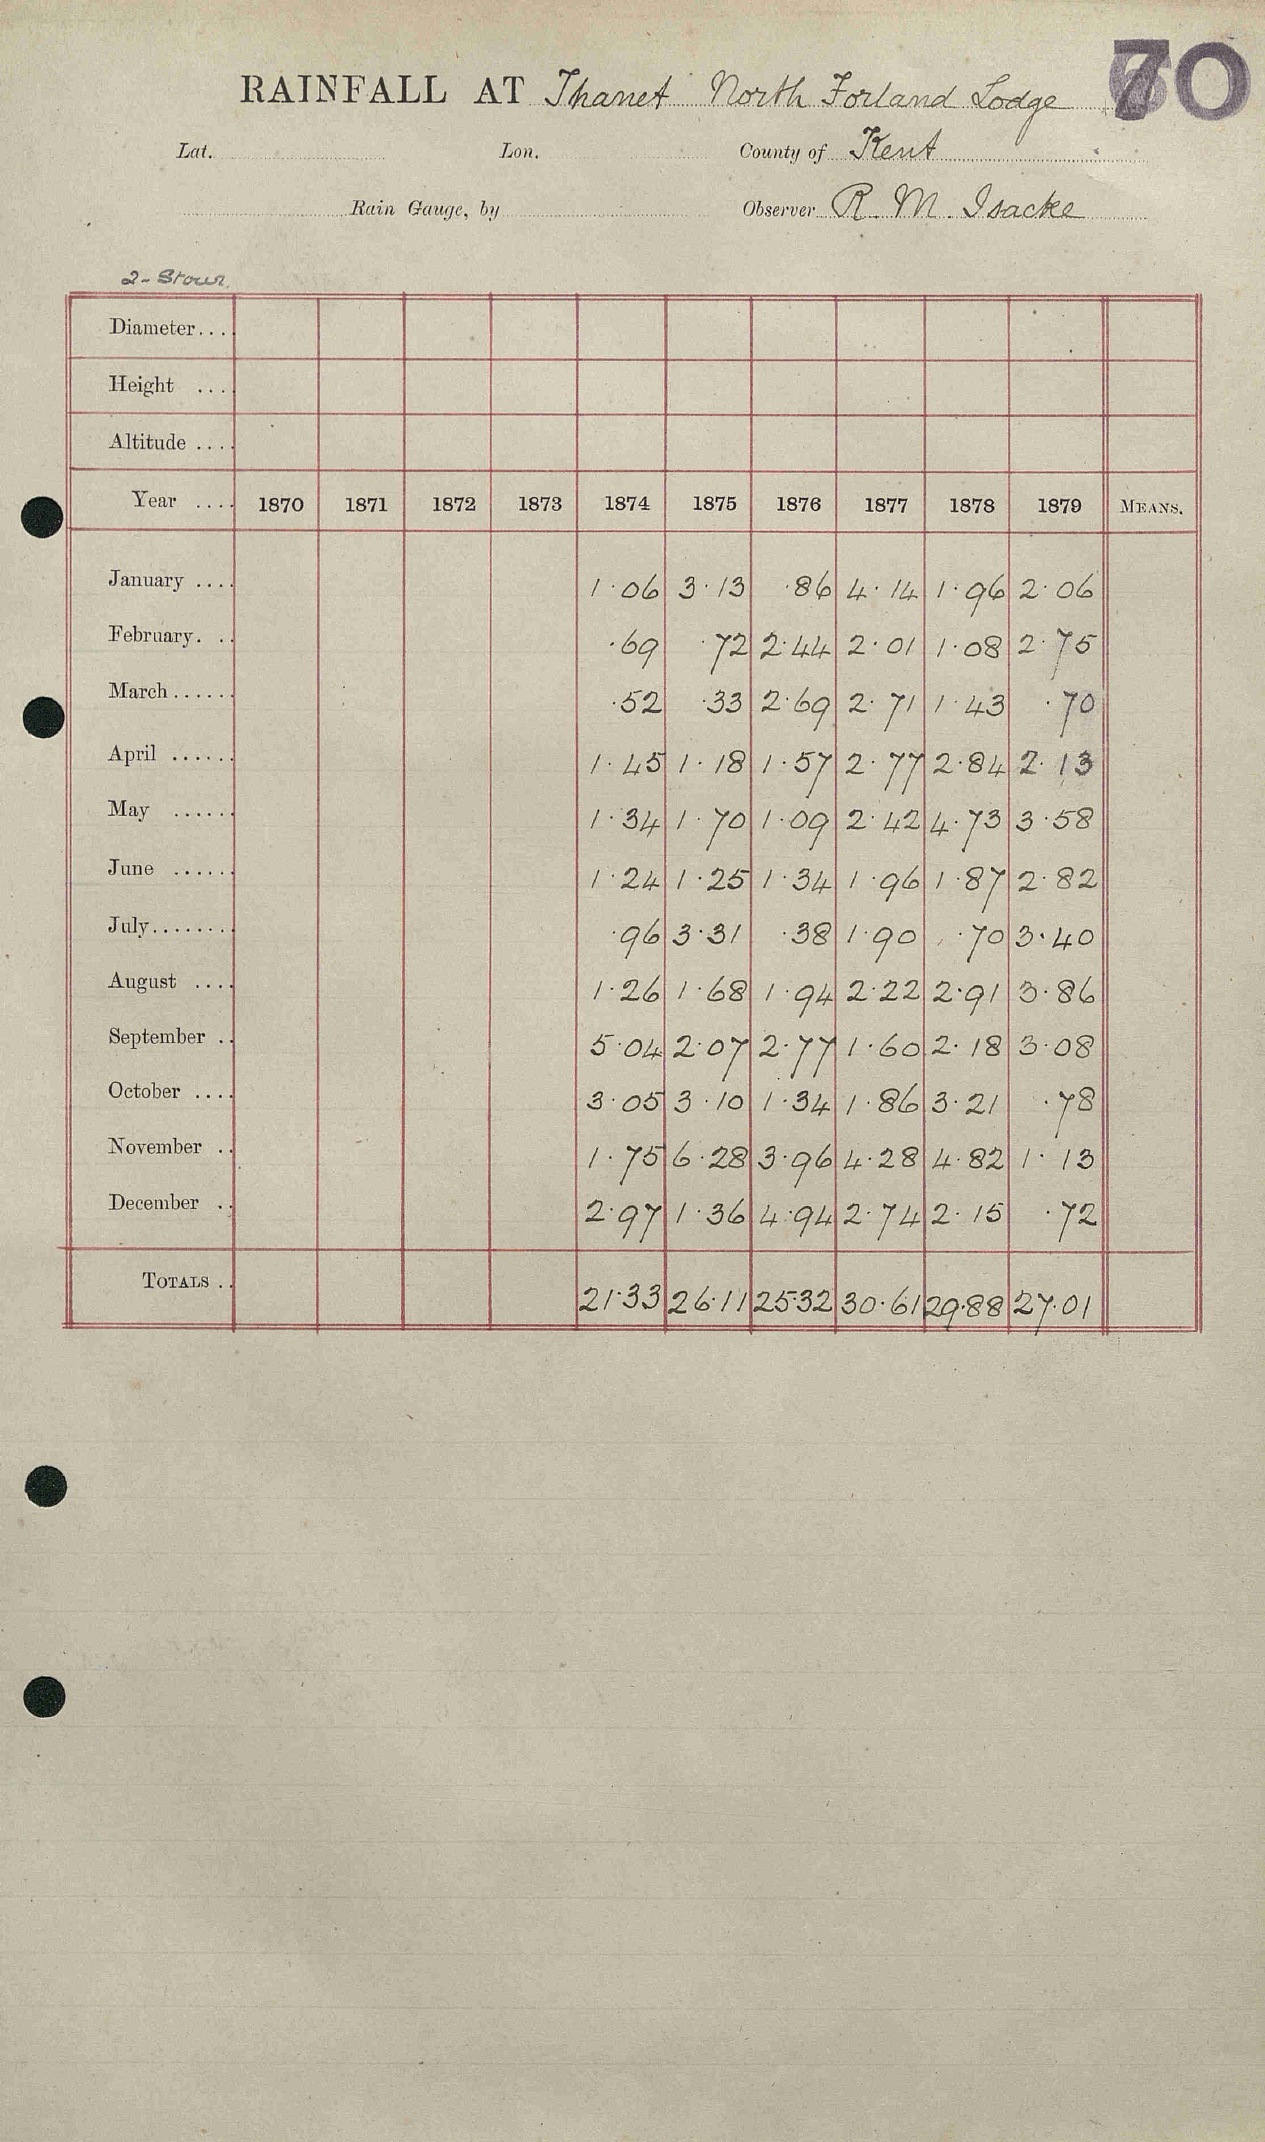 70
RAINFALL AT Thanet North Forland Lodge
Lat. Lon. County of Kent
Rain Gauge, by Observer R. M. Isacke
2 - Stour.
Diameter....
Height ....
Altitude ....
Year .... 1870 1871 1872 1873 1874 1875 1876 1877 1878 1879 MEANS.
January .... 1.06 3.13 .86 4.14 1.96 2.06
February. .. .69 .72 2.44 2.01 1.08 2.75
March...... .52 .33 2.69 2.71 1.43 .70
April ...... 1.45 1.18 1.57 2.77 2.84 2.13
May ...... 1.34 1.70 1.09 2.42 4.73 3.58
June ...... 1.24 1.25 1.34 1.96 1.87 2.82
July........ .96 3.31 .38 1.90 .70 3.40
August .... 1.26 1.68 1.94 2.22 2.91 3.86
September .. 5.04 2.07 2.77 1.60 2.18 3.08
October .... 3.05 3.10 1.34 1.86 3.21 .78
November .. 1.75 6.28 3.96 4.28 4.82 1.13
December .. 2.97 1.36 4.94 2.74 2.15 .72
TOTALS .. 21.33 26.11 25.32 30.61 29.88 27.01